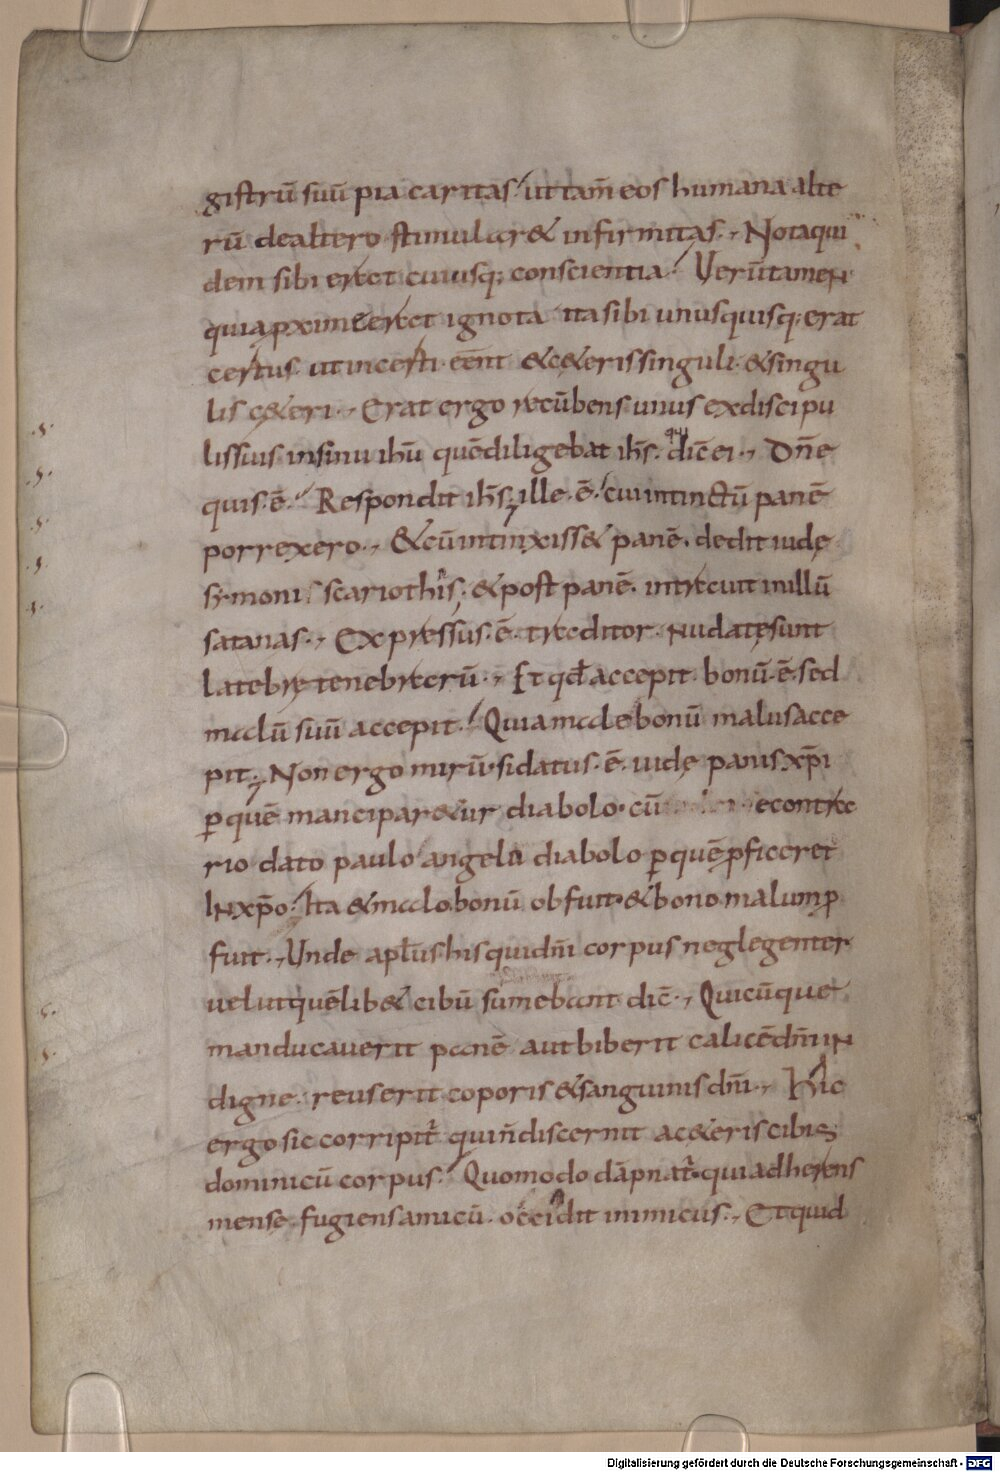 gistrū suū pia caritas ut tam̄ eos humana alte
rū de altero stimular& infirmitas. Nota qui
dem sibi erat cuiusq; conscientia. Uerūtamen
quia pximi erat ignota ita sibi unusquisq; erat
certus ut incerti eēnt & c&eris singuli & singu
lis c&eri. Erat ergo recūbens unus ex discipu
lis suis in sinu ihū quē diligebat ihs. qui dic̄ ei. Dn̄e
quis ē. Respondit ihs; ille ē cui intinctū panē
porrexero. & cū intinxiss& panē. dedit iudę
symonis scariothis. & post panē. intrauit in illū
satanas. Expressus ē traditor. Nudatę sunt
latebrę tenebrarū. Et qd accepit bonū ē. sed
malū suū accepit. Quia male bonū malus acce
pit. Non ergo mirū si datus ē. iudę panis xp̄i
p quē manciparetur diabolo. cū econtra
rio dato paulo angelu diabolo p quē pficeret
In xp̄o. Ita & malo bonū obfuit & bono malum p
fuit. Unde apl̄us his qui dn̄i corpus neglegenter
uelut quēlib& cibū sumebant dic̄. Quicūque
manducauerit panē aut biberit calicē dn̄i in
digne. reus erit coporis & sanguinis dn̄i. Hic
ergo sic corripit̄ qui n̄ discernit a c&eris cibis
dominicū corpus. Quomodo dāpnat̄. qui ad herens
mense. fugiens amicū. occidit inimicus. Et quid
Digitalisierung gefördert durch die Deutsche Forschungsgemeinschaft - DFG